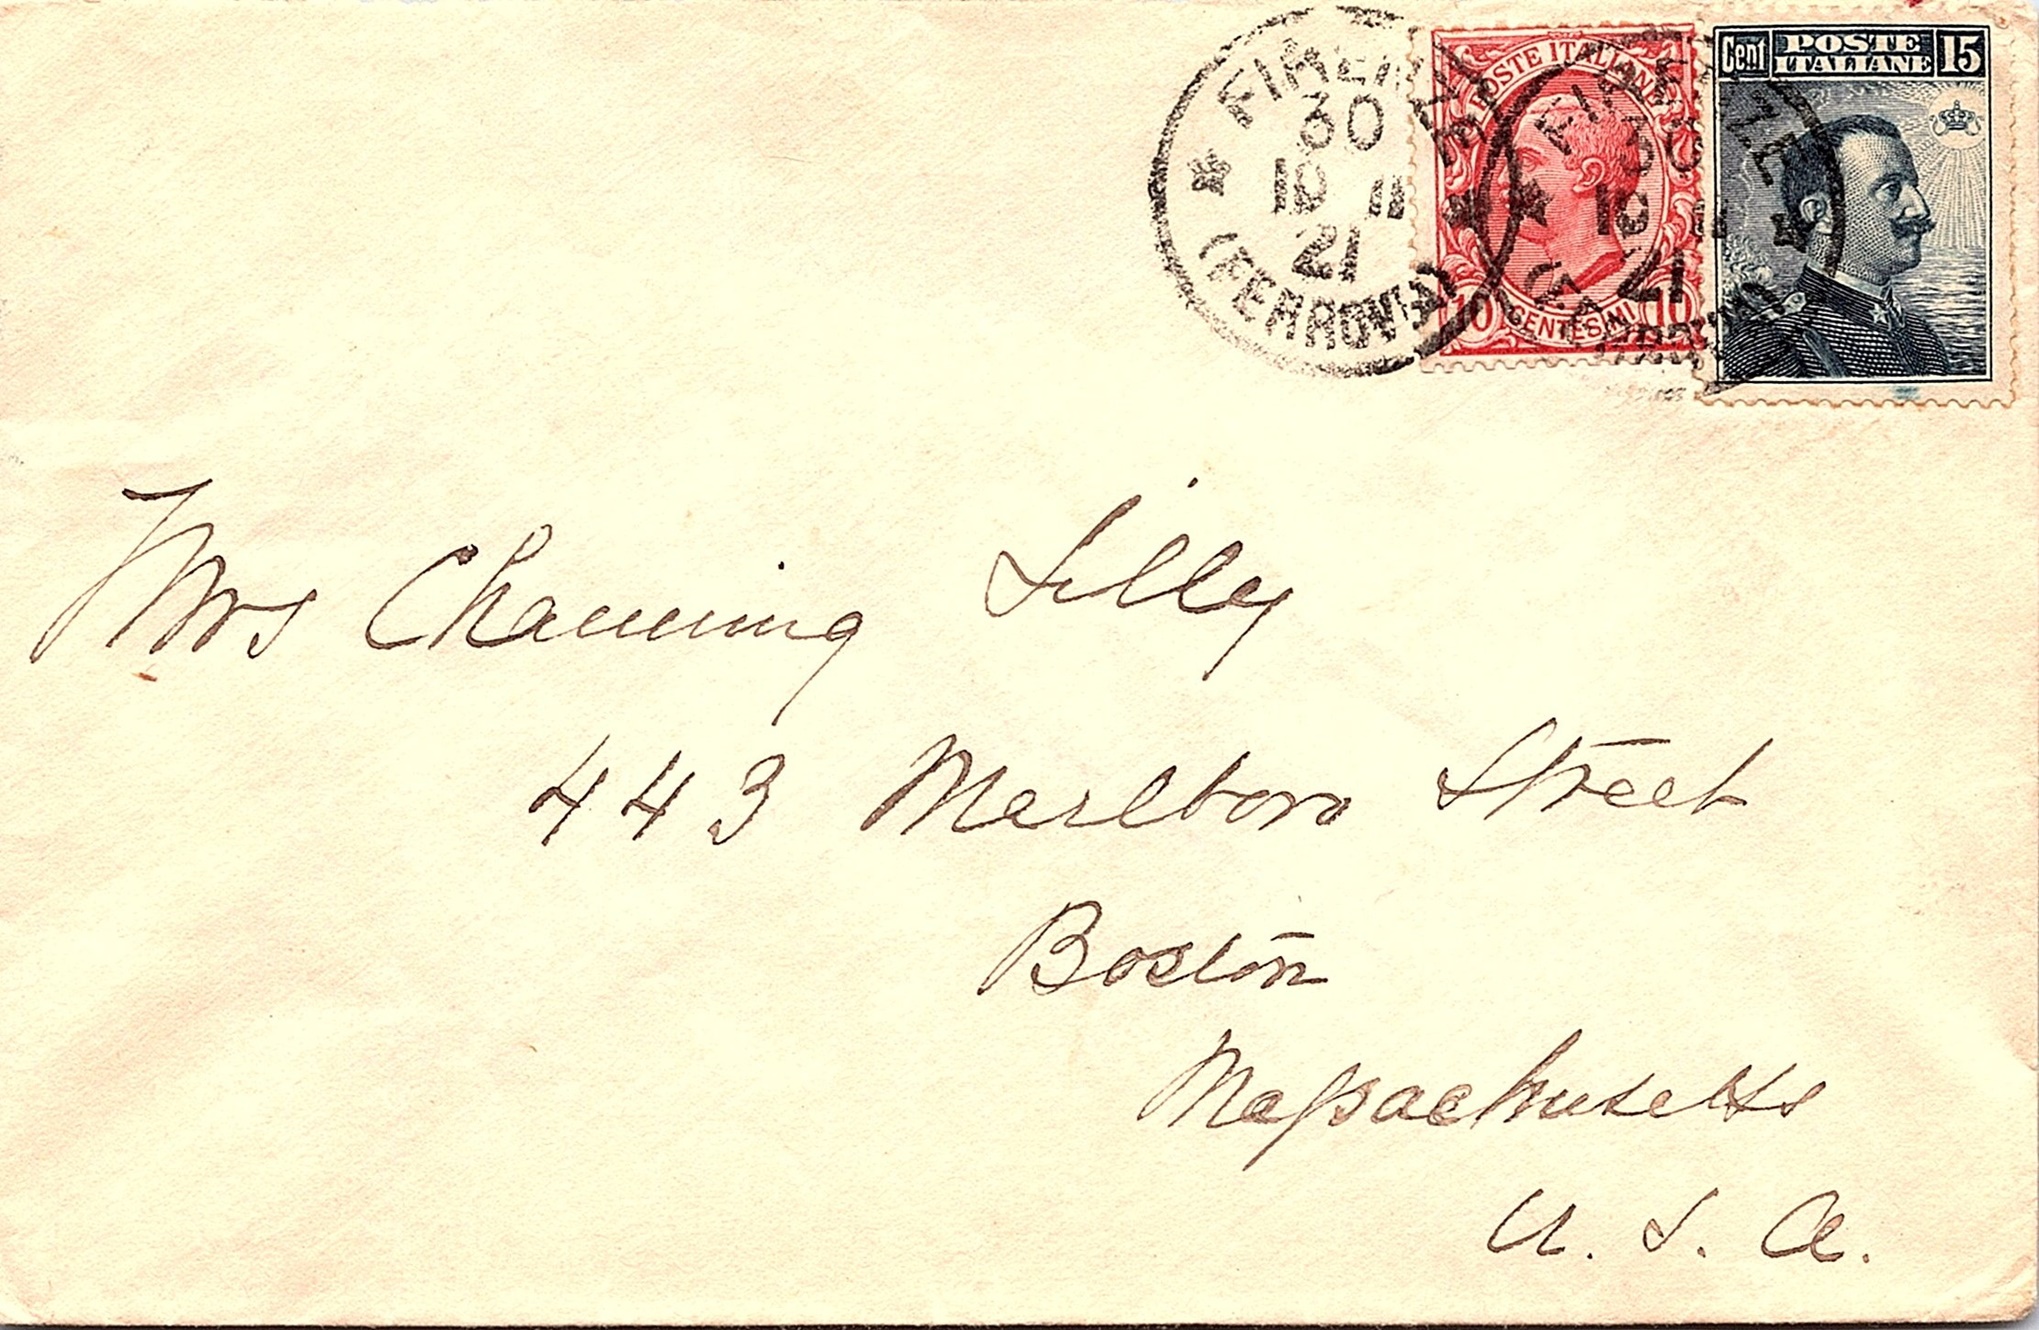 FIRENZE
30
10 11
21
(FERROVIA)
POSTE ITALIANE
10 CENTESIMI 10
FIRENZE
30
10
21
(FERROVIA)
Cent POSTE ITALIANE 15
Mrs Channing Lilly
443 Marlboro Street
Boston
Massachusetts
U. S. A.